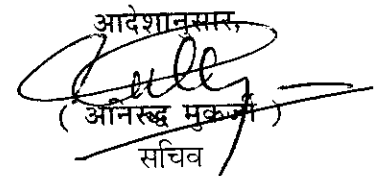 आदेशानुसार,
( अनिरुद्ध मुकर्जी )
सचिव